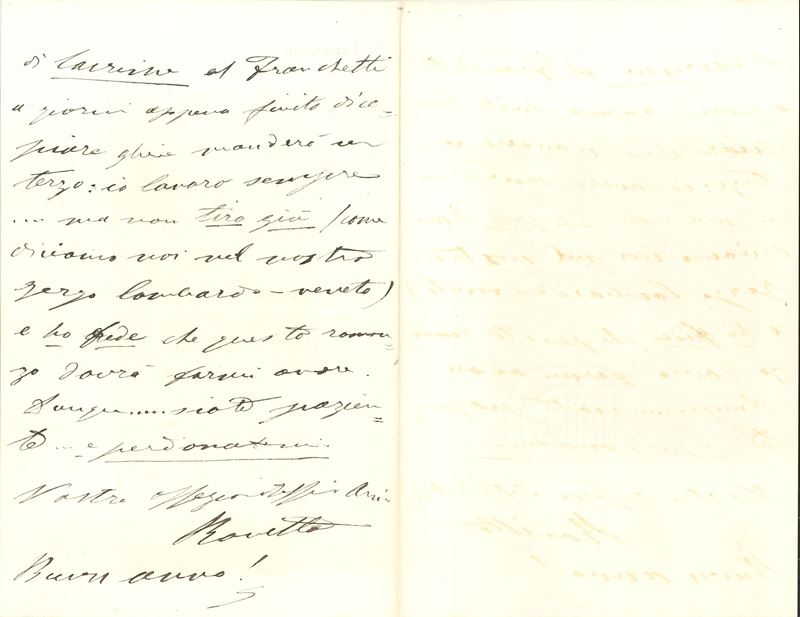 di Lacrime al Franchetti
a giorni appena finito di co-
piare gliene manderò un
terzo: io lavoro sempre
.... ma non tiro giù (come
diciamo noi nel nostro
gergo lombardo-veneto)
e ho fede che questo roman-
zo dovrà farmi onore.
Dunque..... siate pazien-
te ... e perdonatemi.
Vostro affezionatissimo
Rovetta
Buon anno!